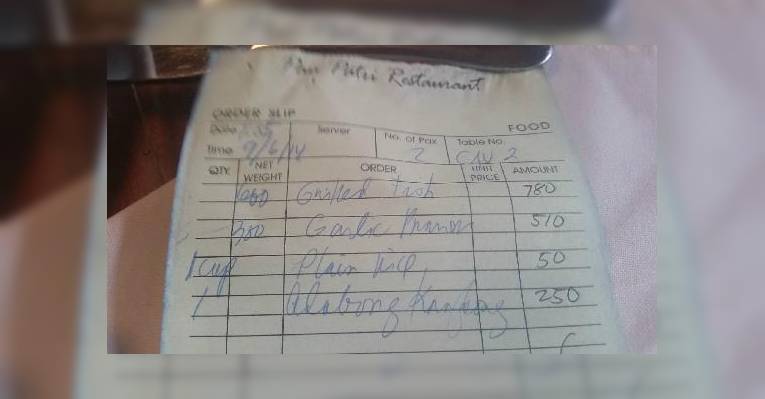 Puri Restaurant
ORDER SLIP
FOOD
Date 1:35 Server No. of Pax 2 Table No.
Time 9/6/14 CAU 2
QTY. NET WEIGHT ORDER UNIT PRICE AMOUNT
Grilled Fish 780
300 Garlic 510
1 cup Plain Rice 50
1 250